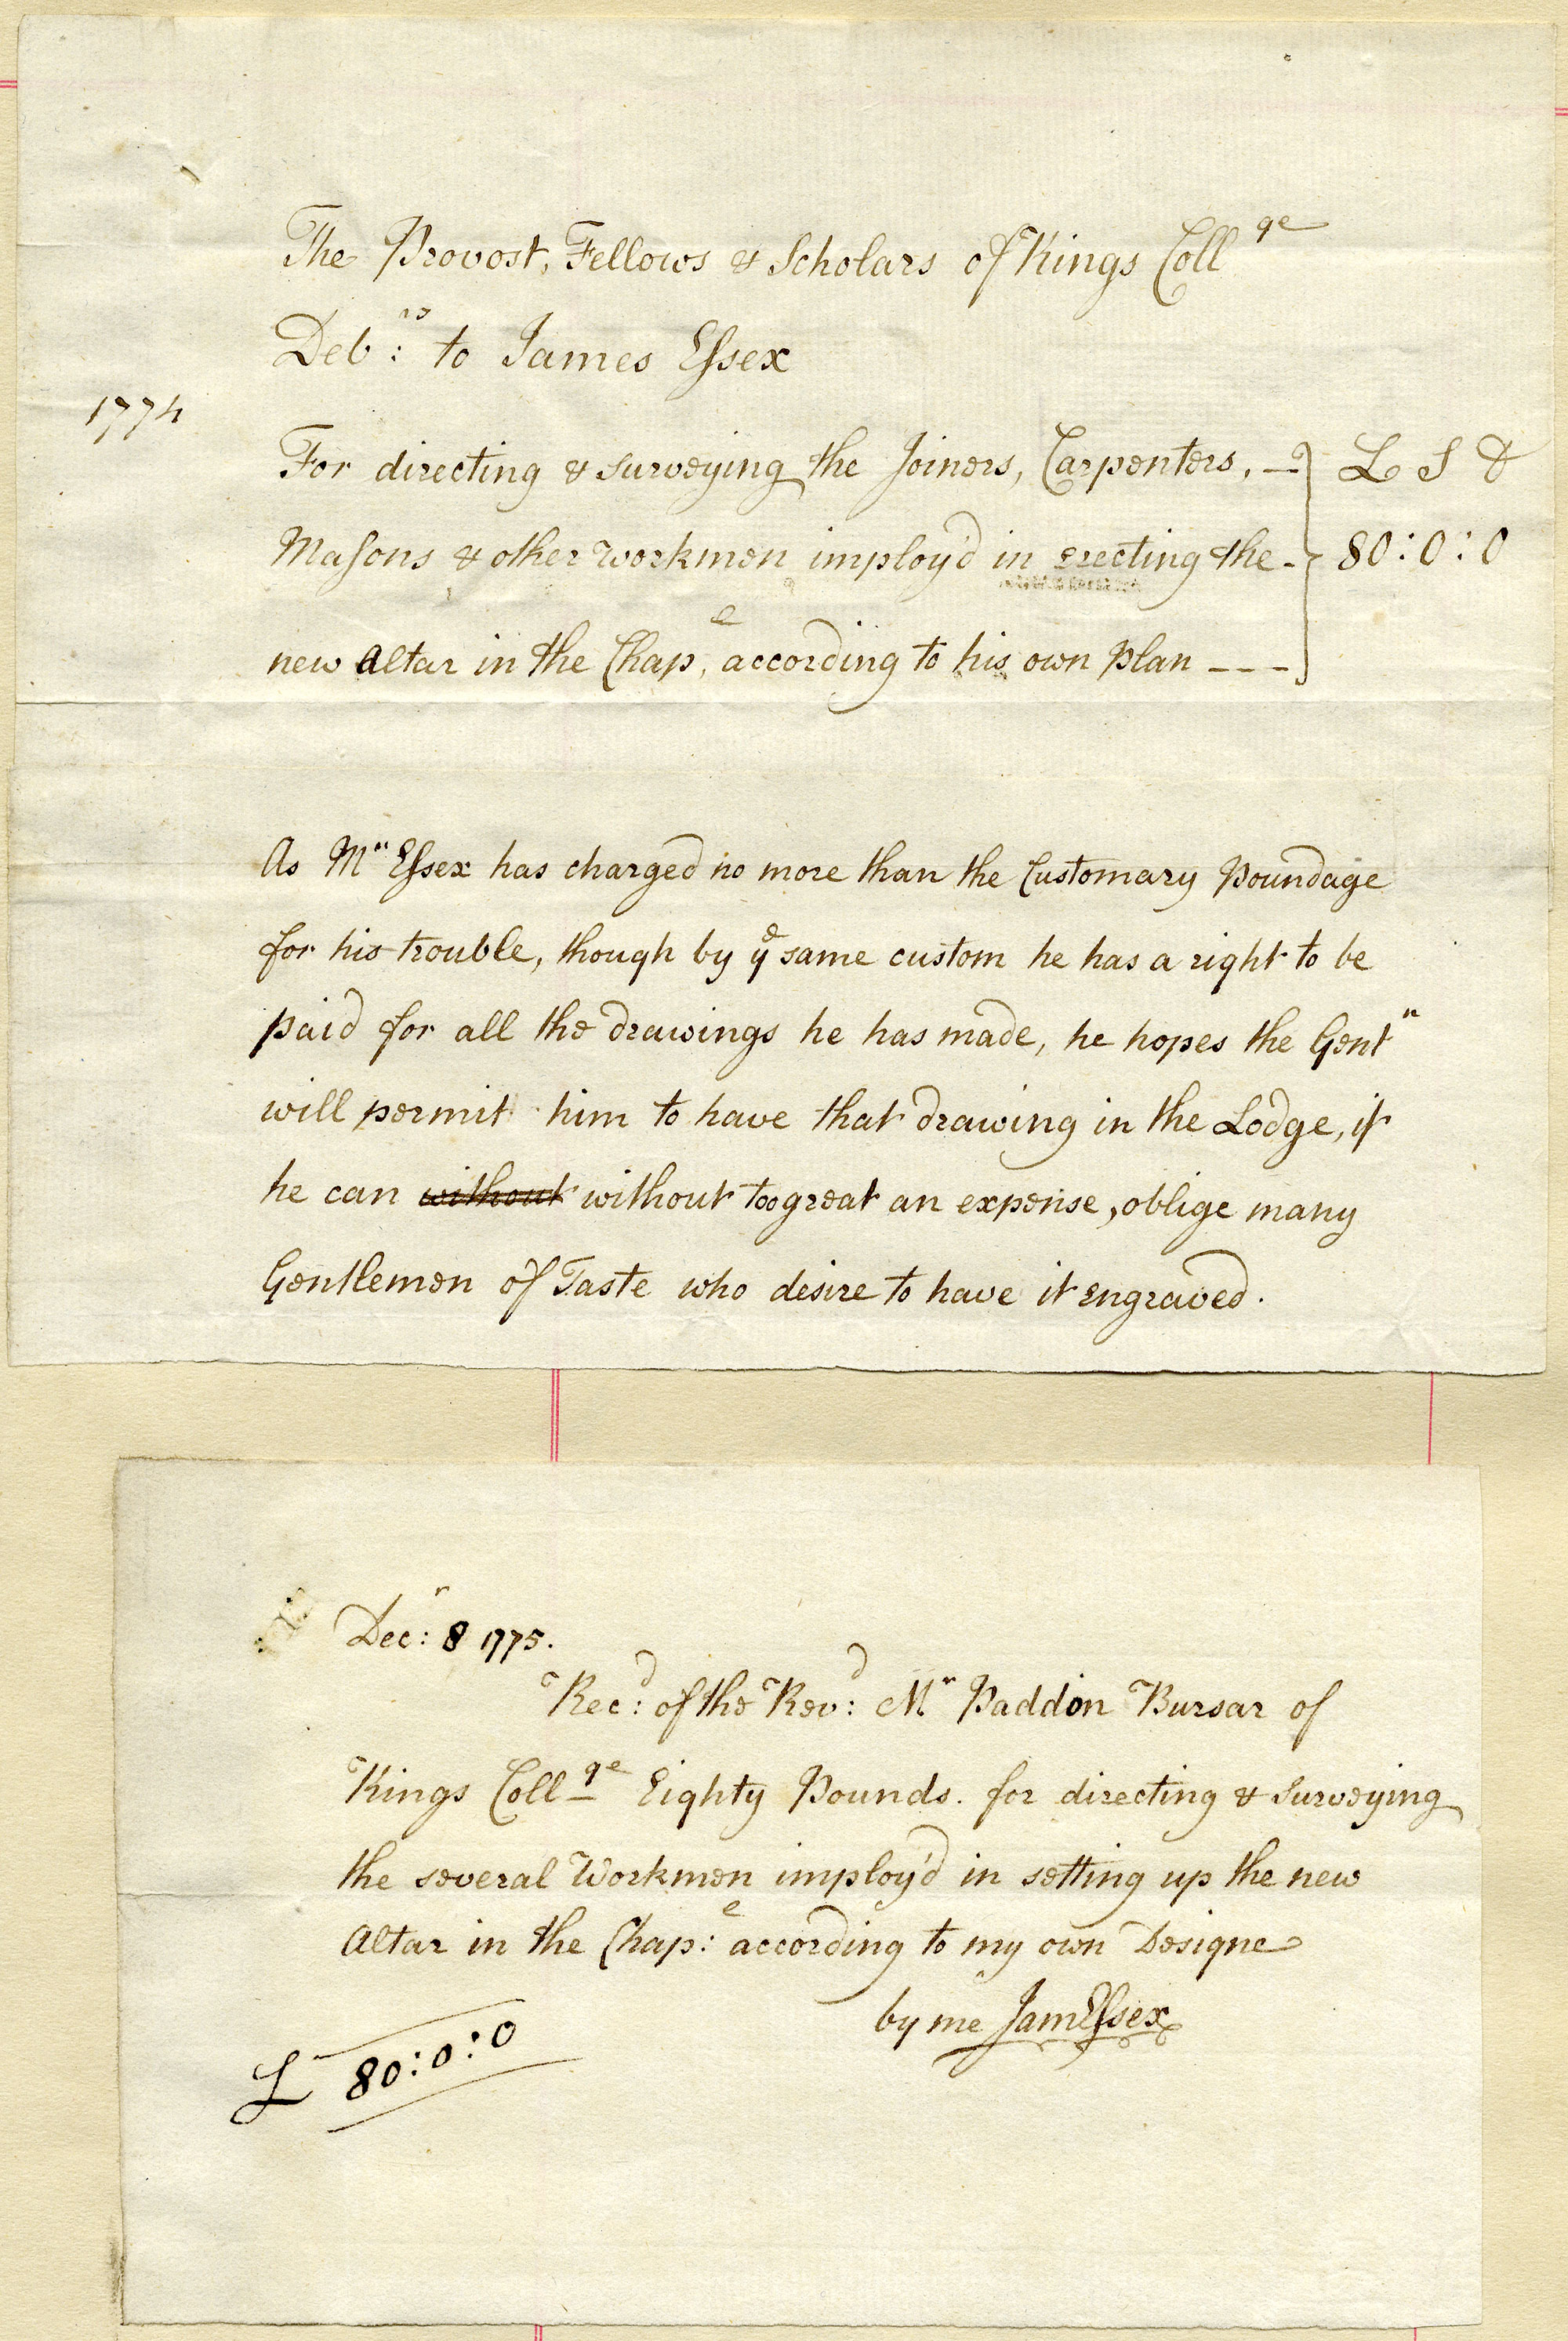 The Provost, Fellows & Scholars of Kings Coll^ge
Deb^rs: to James Eſsex
1774
For directing & surveying the Joiners, Carpenters, — L S D
Maſons & other workmen imploy'd in erecting the - 80:0:0
new Altar in the Chap,^e according to his own plan - - -
As M^r Eſsex has charged no more than the Customary Poundage
for his trouble, though by y^e same custom he has a right to be
paid for all the drawings he has made, he hopes the Gent^n
will permit him to have that drawing in the Lodge, if
he can ~~without~~ without too great an expense, oblige many
Gentlemen of Taste who desire to have it engraved.
Dec^r: 8 1775.
Rec^d: of the Rev^d: M^r Paddon Bursar of
Kings Coll^ge Eighty Pounds. for directing & surveying
the several Workmen imploy'd in setting up the new
Altar in the Chap:^e according to my own Designe
by me Jam Eſsex
L 80:0:0